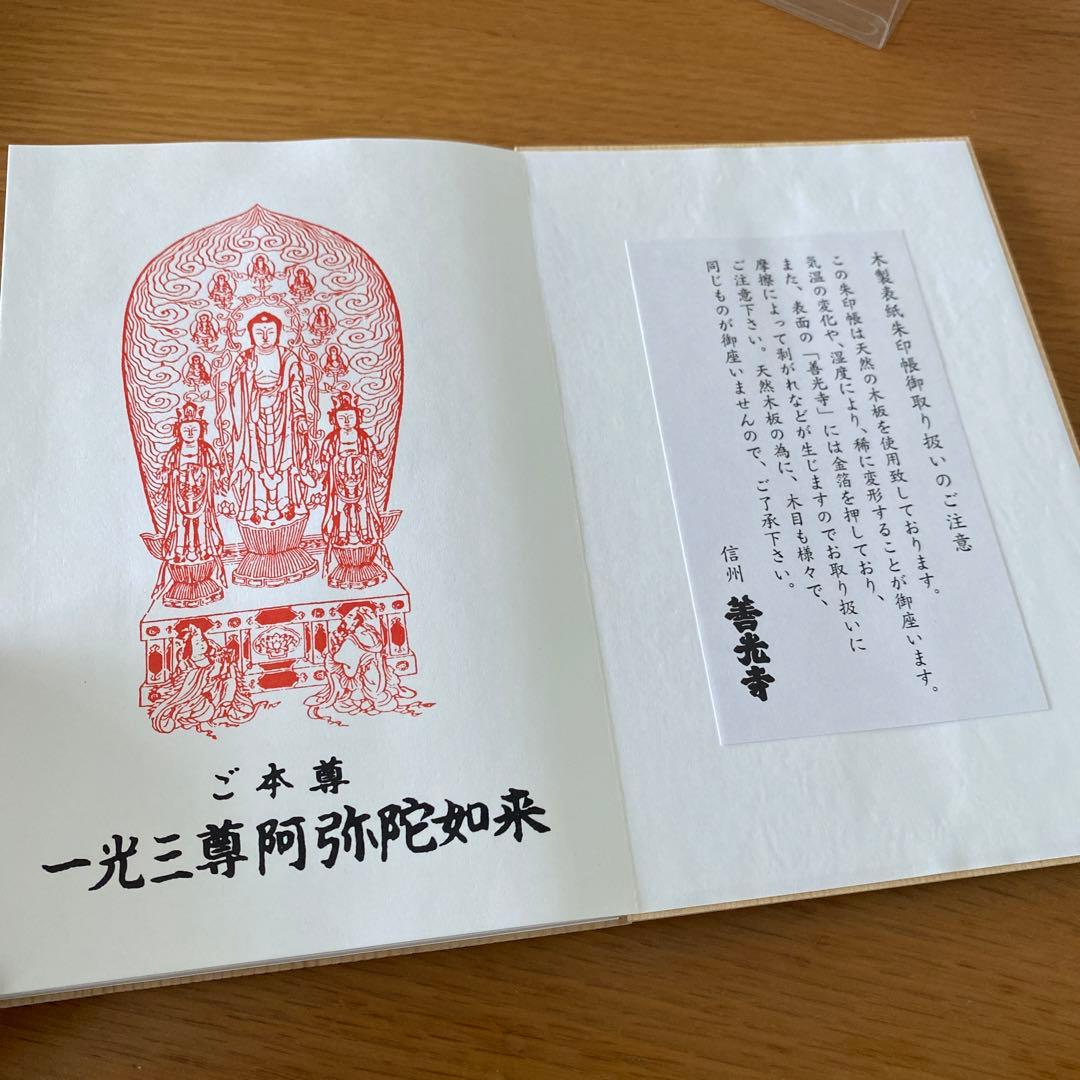 木製表紙朱印帳御取り扱いのご注意
この朱印帳は天然の木板を使用致しております。
気温の変化や、湿度により、稀に変形することが御座います。
また、表面の「善光寺」には金箔を押しており、
摩擦によって剥がれなどが生じますのでお取り扱いに
ご注意下さい。天然木板の為に、木目も様々で、
同じものが御座いませんので、ご了承下さい。
信州 善光寺
ご本尊
一光三尊阿弥陀如来